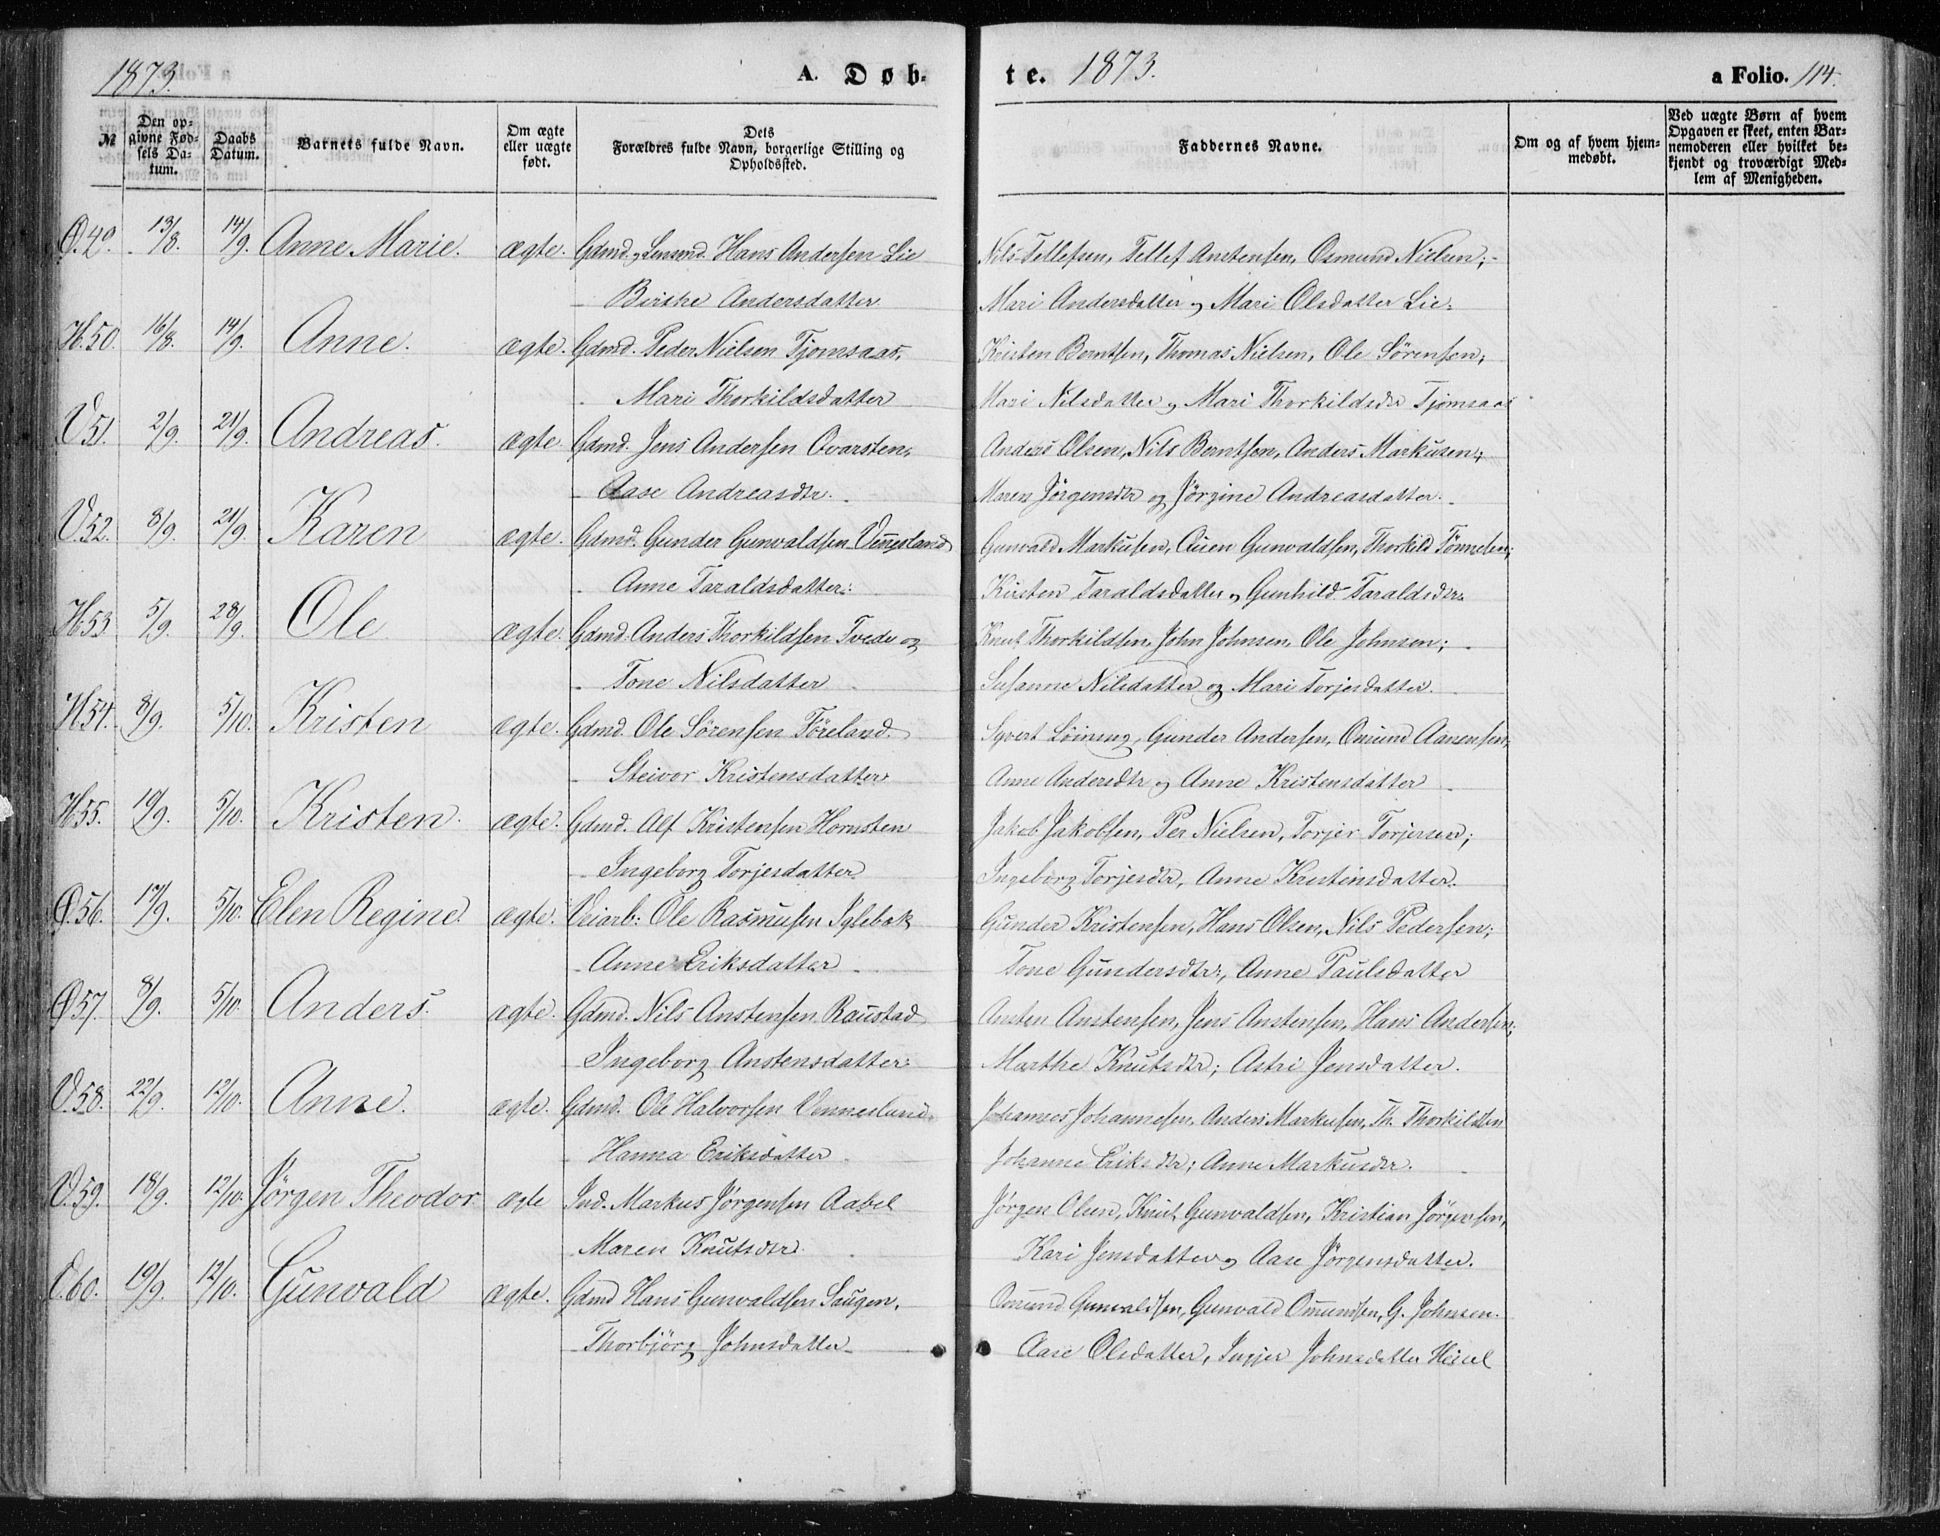 1873. A. Døb- te. 1873. a Folio. 114.
№ Den opgivne Fødsels Datum. Daabs Datum. Barnets fulde Navn. Om ægte eller uægte født. Dets Forældres fulde Navn, borgerlige Stilling og Opholdssted. Faddernes Navne. Om og af hvem hjemmedøbt. Ved uægte Børn af hvem Opgaven er skeet, enten Barnemoderen eller hvilket bekjendt og troværdigt Medlem af Menigheden.
Ø.49. 13/8. 14/9. Anne Marie. ægte. Gdmd. og Lensmd. Hans Andersen Lie Nils Tellefsen, Tellef Anstensen, Osmund Nielsen;
Birthe Andersdatter Mari Andersdatter og Mari Olsdatter Lie.
H.50. 16/8. 14/9. Anne. ægte. Gdmd. Peder Nielsen Tjomsaas, Kristen Berntsen, Thomas Nielsen, Ole Sörensen,
Mari Thorkildsdatter Mari Nilsdatter og Mari Thorkildsdtr Tjomsaas
V.51. 2/9. 21/9. Andreas. ægte. Gdmd. Jens Andersen Ovarsten, Anders Olsen, Nils Berntsen, Anders Markusen;
Aase Andreasdtr. Maren Jörgensdtr og Jörgine Andreasdatter.
V.52. 8/9. 21/9. Karen ægte. Gdmd. Gunder Gunvaldsen Vennesland Gunvald Markusen, Auen Gunvaldsen, Thorkild Tönnesen;
Anne Taraldsdatter. Kirsten Taraldsdatter og Gunhild Taraldsdtr.
H.53 5/9. 28/9. Ole ægte. Gdmd. Anders Thorkildsen Tvede og Knut Thorkildsen, John Johnsen, Ole Johnsen;
Tone Nilsdatter Susanne Nilsdatter og Mari Torjesdatter.
H.54. 8/9. 5/10. Kristen ægte. Gdmd. Ole Sörensen Föreland. Syvert Löining, Gunder Andersen, Omund Aanensen,
Steivor Kristensdatter Anne Andersdtr og Anne Kristensdatter
H.55. 19/9. 5/10. Kristen. ægte. Gdmd. Alf Kristensen Hornsten Jakob Jakobsen, Per Nielsen, Torjer Torjersen;
Ingeborg Torjesdatter. Ingeborg Torjesdtr, Anne Kristinsdatter.
Ø.56. 17/9. 5/10. Elen Regine. ægte. Veiarb: Ole Rasmusen Iglebæk Gunder Kristensen, Hans Olsen, Nils Pedersen;
Anne Eriksdatter Tone Gundersdtr, Anne Paulsdatter
Ø.57. 8/9. 5/10. Anders. ægte. Gdmd. Nils Anstensen Raustad Ansten Anstensen, Jens Anstensen, Hans Andersen;
Ingeborg Anstensdatter. Marthe Knutsdtr; Astri Jensdatter.
V.58. 22/9. 12/10. Anne. ægte. Gdmd. Ole Halvorsen Vennesland. Johannes Johannesen, Anders Markusen, Th. Thorkildsen
Hanna Eriksdatter Johanne Eriksdtr; Anne Markusdtr.
V.59. 18/9. 12/10. Jörgen Theodor. ægte Ind. Markus Jörgensen Aabel Jörgen Olsen, Knut Gunvaldsen, Kristian Jörgensen,
Maren Knutsdtr. Kari Jensdatter og Aase Jörgensdatter.
V.60. 19/9. 12/10. Gunvald ægte. Gdmd Hans Gunvaldsen Saugen, Omund Gunvaldsen, Gunvald Omundsen, G. Johnsen.
Thorbjörg Johnsdatter Aase Olsdatter, Ingjer Johnsdatter Heisel